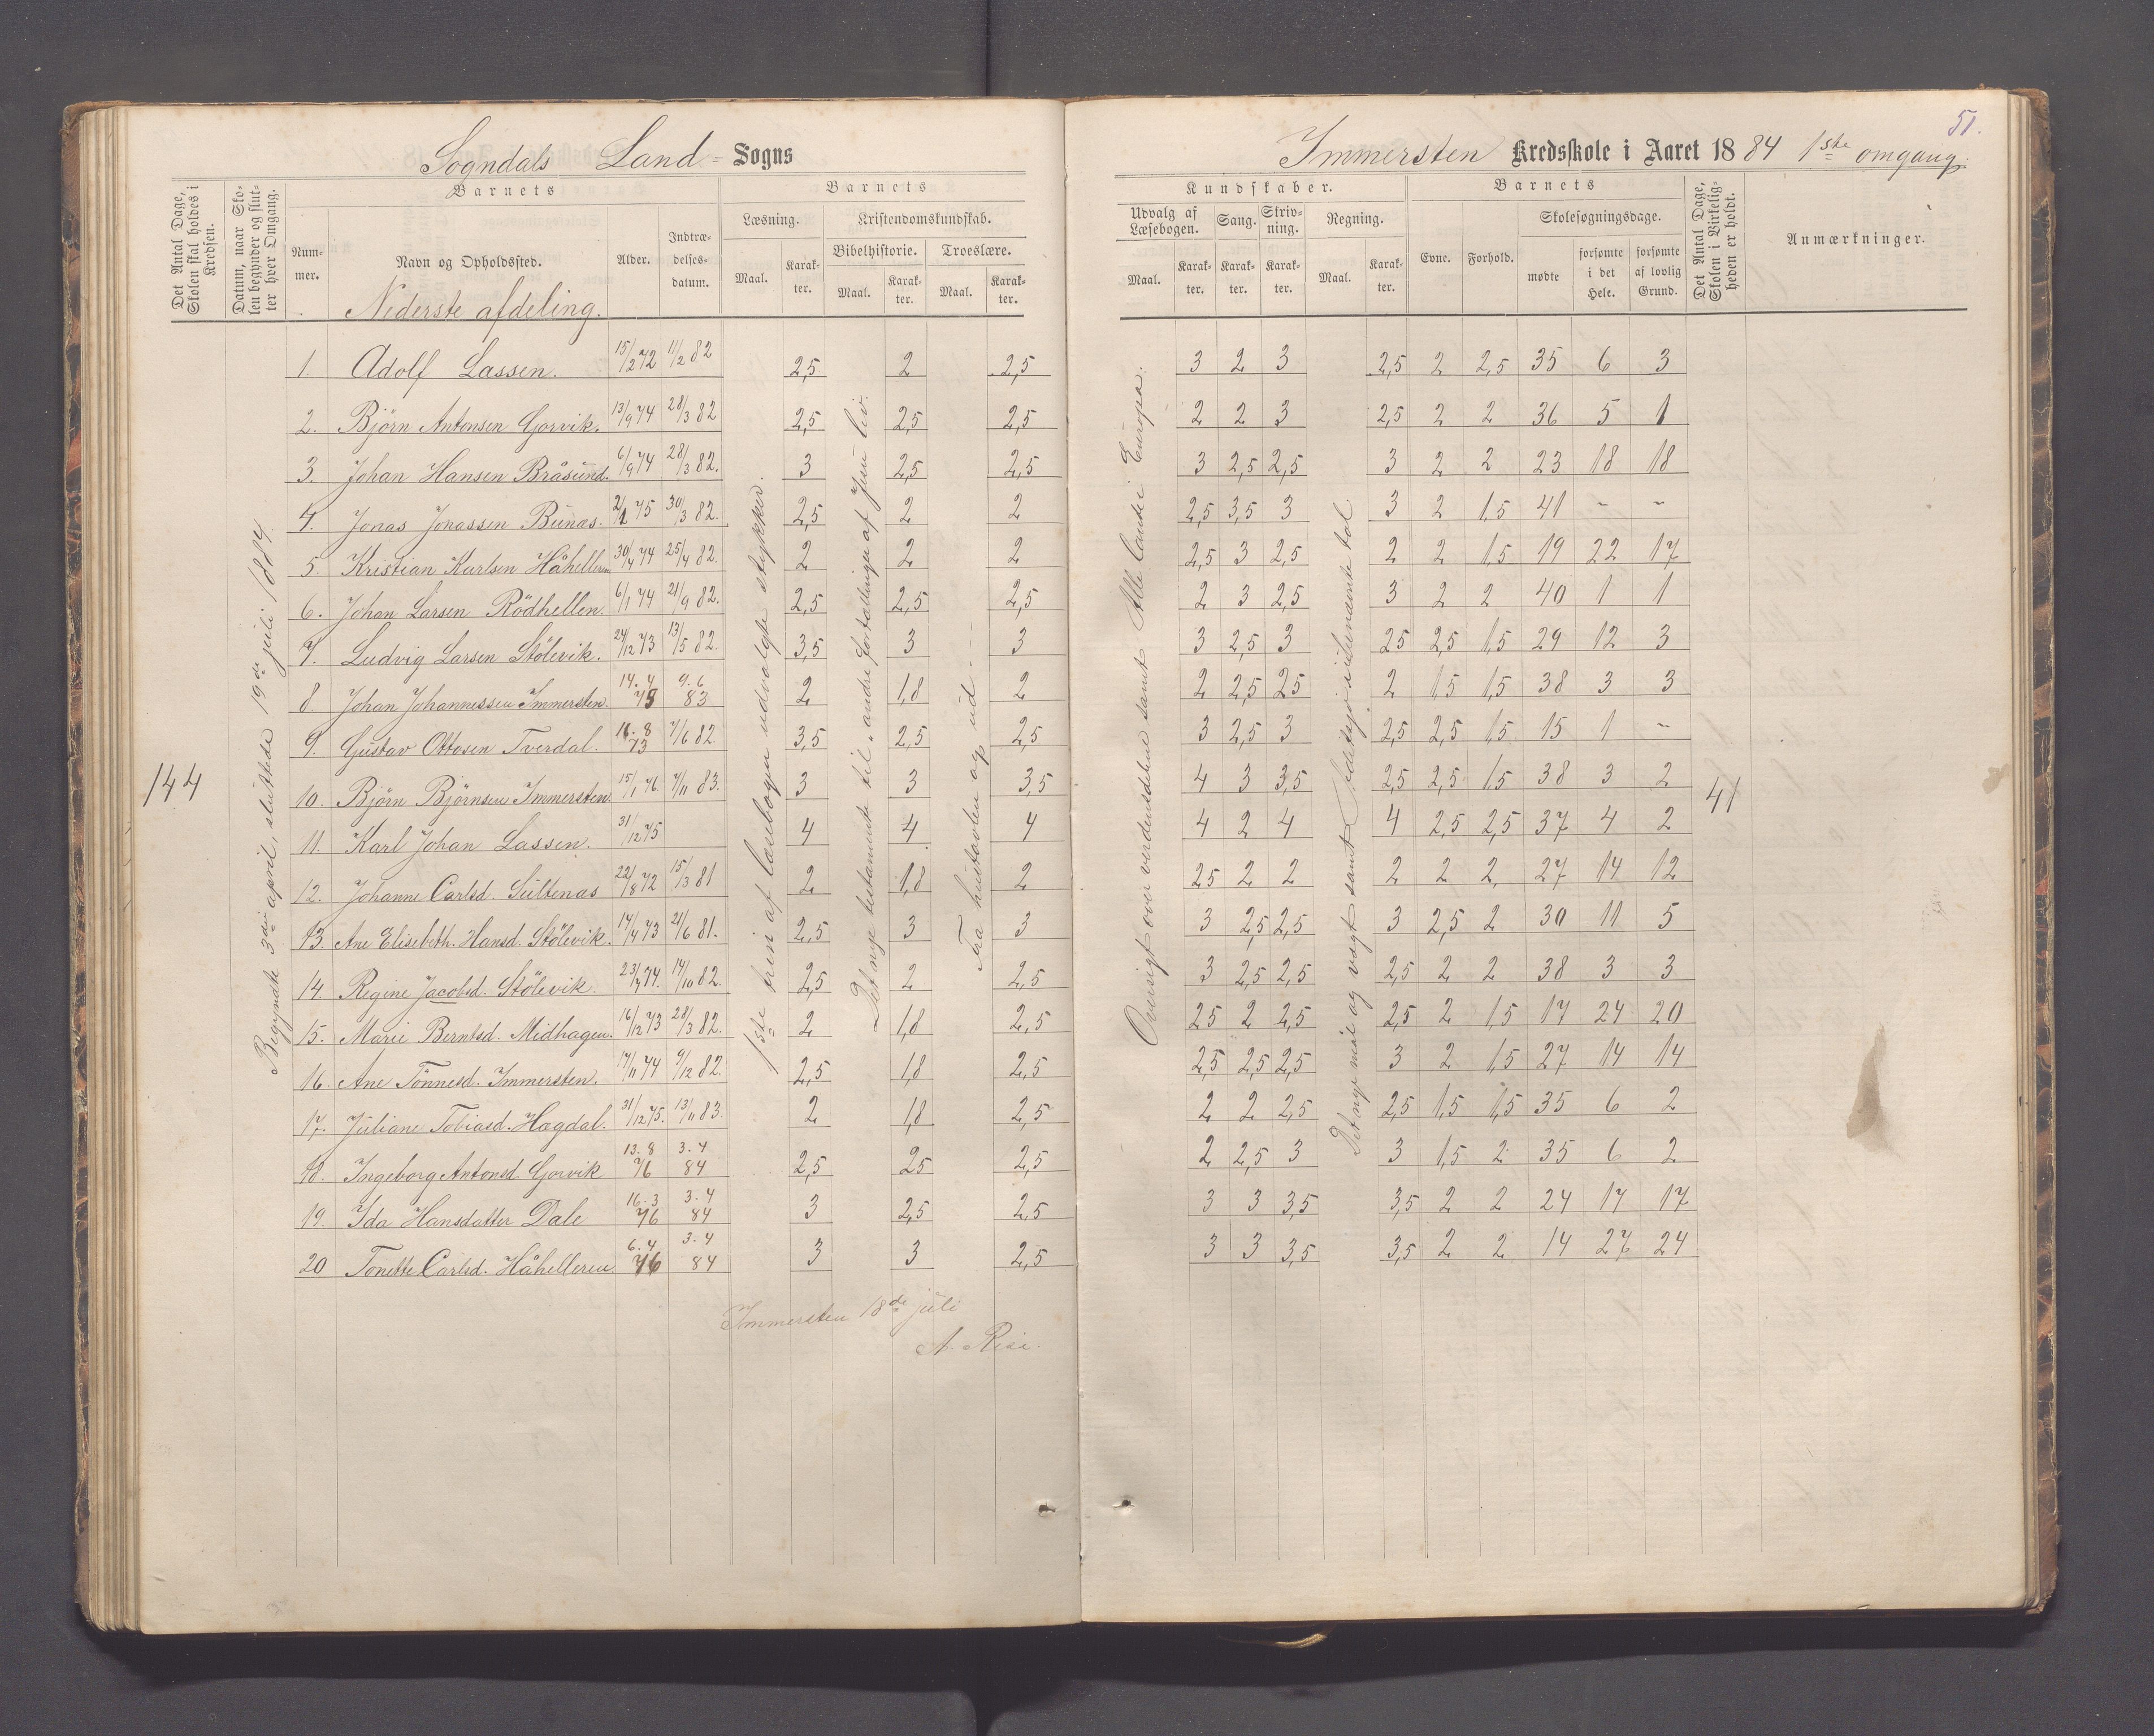 51.
Sogndals Land = Sogns
Immersten Kredsskole i Aaret 1884 1ste omgang.
Det Antal Dage, Skolen skal holdes i Kredsen.
Datum, naar Skolen begynder og slutter hver Omgang.
Barnets
Nummer.
Navn og Opholdssted.
Alder.
Indtrædelsesdatum.
Barnets
Læsning.
Maal. Karakter.
Kristendomskundskab.
Bibelhistorie. Troeslære.
Maal. Karakter. Maal. Karakter.
Kundskaber.
Udvalg af Læsebogen. Sang. Skrivning. Regning.
Maal. Karakter. Karakter. Karakter. Maal. Karakter.
Barnets
Evne. Forhold.
Skolesøgningsdage.
mødte forsømte i det Hele. forsømte af lovlig Grund.
Det Antal Dage, Skolen i Virkeligheden er holdt.
Anmærkninger.
Nederste afdeling.
144
Begyndte 3die april, sluttede 19de juli 1884.
1ste trin af læsebogen udvalgte stykker.
Det nye testamente til „andre fortællinger af Jesu liv.
Fra hustavlen og ud
Oversigt over verdensdelene samt Alle lande i Europa.
Det nye mål og vægt samt
41
1. Adolf Lassen. 15/2 72 11/2 82 2,5 2 2,5 3 2 3 2,5 2 2,5 35 6 3
2. Björn Antonsen Gorvik. 13/9 74 28/3 82 2,5 2,5 2,5 2 2 3 2,5 2 2 36 5 1
3. Johan Hansen Bråsund. 6/9 74 28/3 82. 3 2,5 2,5 3 2,5 2,5 3 2 2 23 18 18
4. Jonas Jonassen Bunas. 2/1 75 30/3 82. 2,5 2 2 2,5 3,5 3 3 2 1,5 41 – –
5. Kristian Karlsen Håhelleren 30/4 74 25/4 82. 2 2 2 2,5 3 2,5 2 2 1,5 19 22 17
6. Johan Larsen Rödhellen. 6/1 74 21/9 82. 2,5 2,5 2,5 2 3 2,5 3 2 2 40 1 1
7. Ludvig Larsen Stölevik. 24/12 73 13/5 82. 3,5 3 3 3 2,5 3 25 2,5 1,5 29 12 3
8. Johan Johannessen Immersten. 14. 4 75 9. 6 83 2 1,8 2 2 2,5 25 2 1,5 1,5 38 3 3
9. Gustav Ottosen Tverdal. 16. 8 73 7/6 82. 3,5 2,5 2,5 3 2,5 3 2,5 2,5 1,5 15 1 –
10. Björn Björnsen Immersten. 15/1 76. 7/11 83. 3 3 3,5 4 3 3,5 2,5 2,5 1,5 38 3 2
11. Karl Johan Lassen. 31/12 75 4 4 4 4 2 4 4 2,5 2,5 37 4 2
12. Johanne Carlsd. Sültenas 22/8 72 15/3 81 2 1,8 2 25 2 2 2 2 2 27 14 12
13. Ane Elisebeth. Hansd. Stölevik. 14/4 73 21/6 81. 2,5 3 3 3 2,5 2,5 3 2,5 2 30 11 5
14. Regine Jacobsd. Stölevik. 23/7 74. 14/10 82. 2,5 2 2,5 3 2,5 2,5 2,5 2 2 38 3 3
15. Marie Berntsd. Midhagen. 16/12 73 28/3 82. 2 1,8 2,5 25 2 2,5 2,5 2 1,5 17 24 20
16. Ane Tönnesd. Immersten. 17/11 74 9/12 82. 2,5 1,8 2,5 2,5 2,5 2,5 3 2 1,5 27 14 14
17. Juliane Tobiasd. Hagdal. 31/12 75. 13/11 83. 2 1,8 2,5 2 2 2,5 2,5 1,5 1,5 35 6 2
18. Ingeborg Antonsd. Gorvik 13. 8 76 3. 4 84 2,5 25 2,5 2 2,5 3 3 1,5 2 35 6 2
19. Ida Hansdatter Dale 16. 3 76 3. 4 84 3 2,5 2,5 3 3 3,5 3,5 2 2 24 17 17
20 Tonette Carlsd. Håhelleren 6. 4 76 3. 4 84 3 3 2,5 3 3 3,5 3,5 2 2 14 27 24
Immersten 18de juli
A. Risi.